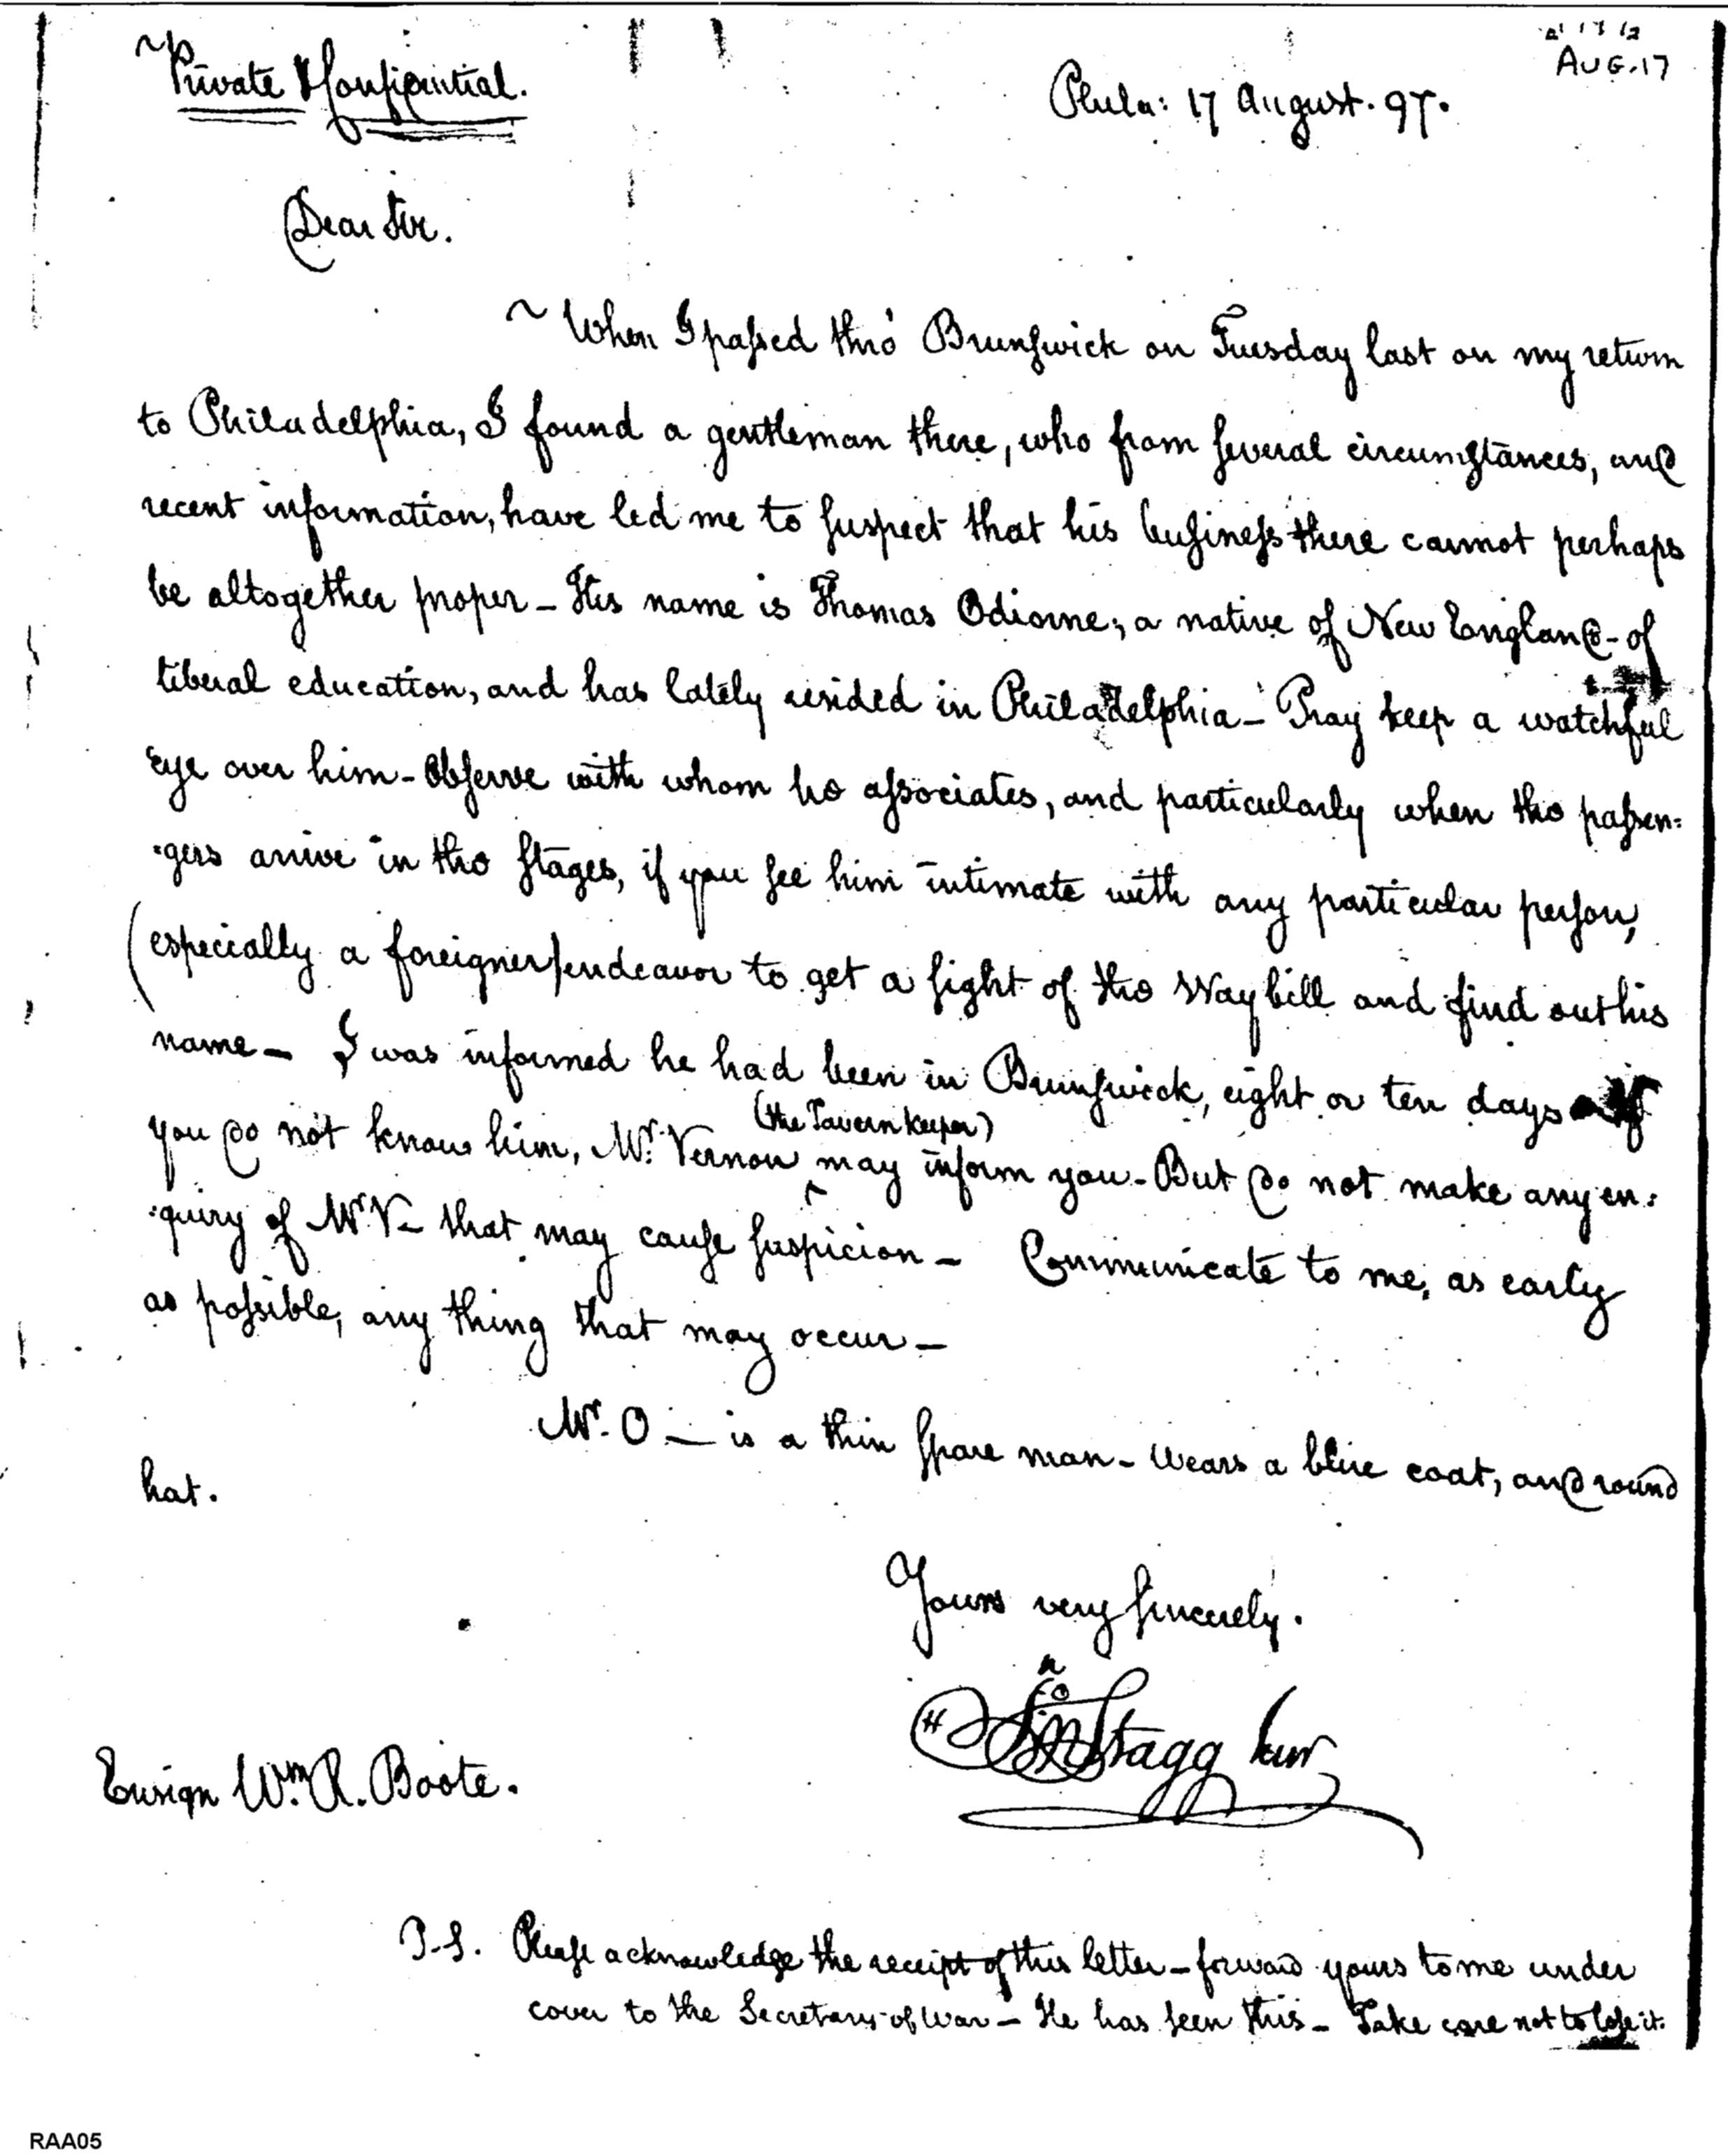 AUG. 17
Private & Confidential.
Phila: 17 August. 97.
Dear Sir.
~ When I paſsed thro' Brunſwick on Tuesday last on my return
to Philadelphia, I found a gentleman there, who from ſeveral circumſtances, and
recent information, have led me to ſuspect that his buſineſs there cannot perhaps
be altogether proper – His name is Thomas Odiorne, a native of New England – of
liberal education, and has lately resided in Philadelphia – Pray keep a watchful
Eye over him – Obſerve with whom he aſsociates, and particularly when the paſsen=
=gers arrive in the ſtages, if you ſee him intimate with any particular perſon,
(especially a foreigner) endeavor to get a ſight of the Way bill and find out his
name – I was informed he had been in Brunſwick, eight or ten days – If
(the Tavern keeper)
you do not know him, Mr. Vernon ‸ may inform you – But do not make any en=
=quiry of Mr. V– that may cauſe ſuspicion – Communicate to me, as early
as poſsible, any thing that may occur –
Mr. O – is a thin ſpare man – wears a blue coat, and round
hat.
Yours very ſincerely.
Jno Stagg Junr
Ensign Wm. R. Boote.
P.S. Pleaſe acknowledge the receipt of this letter – forward yours to me under
cover to the Secretary of War – He has ſeen this – Take care not to loſe it.
RAA05